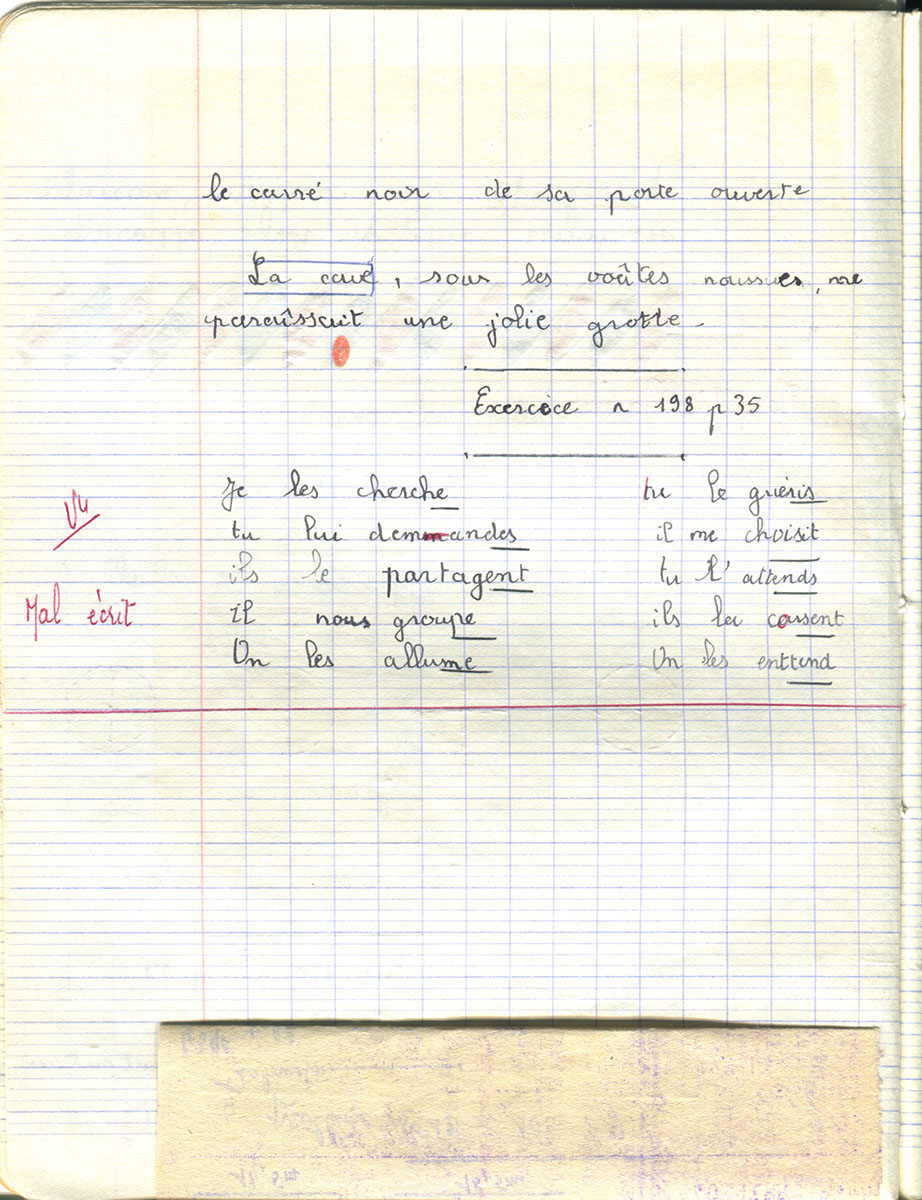 le carré noir de sa porte ouverte
La cave, sous les voûtes noires, me
paraîssait une jolie grotte.
Exercice n 198 p 35
Je les cherche tu le guéris
Vu
tu lui demmandes il me choisit
ils le partagent tu l'attends
Mal écrit
il nous groupe ils la cassent
On les allume On les enttend